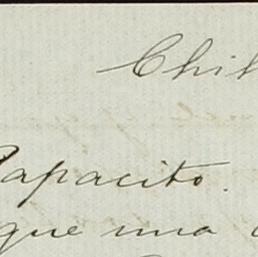 Chih
Papacito.
que una